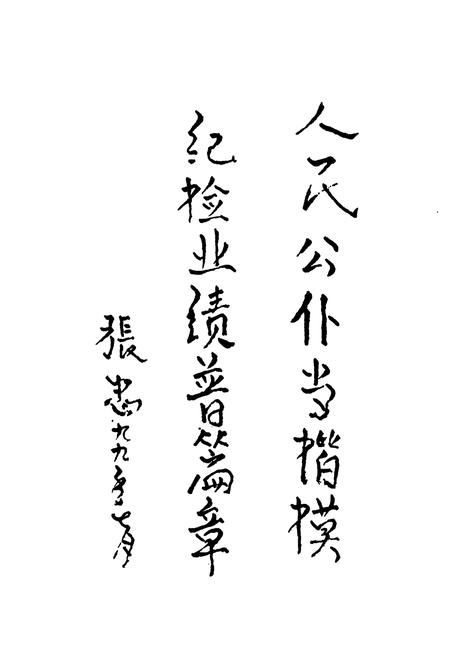 人民公仆当楷模
纪检业绩普篇章
張忠 九九年七月